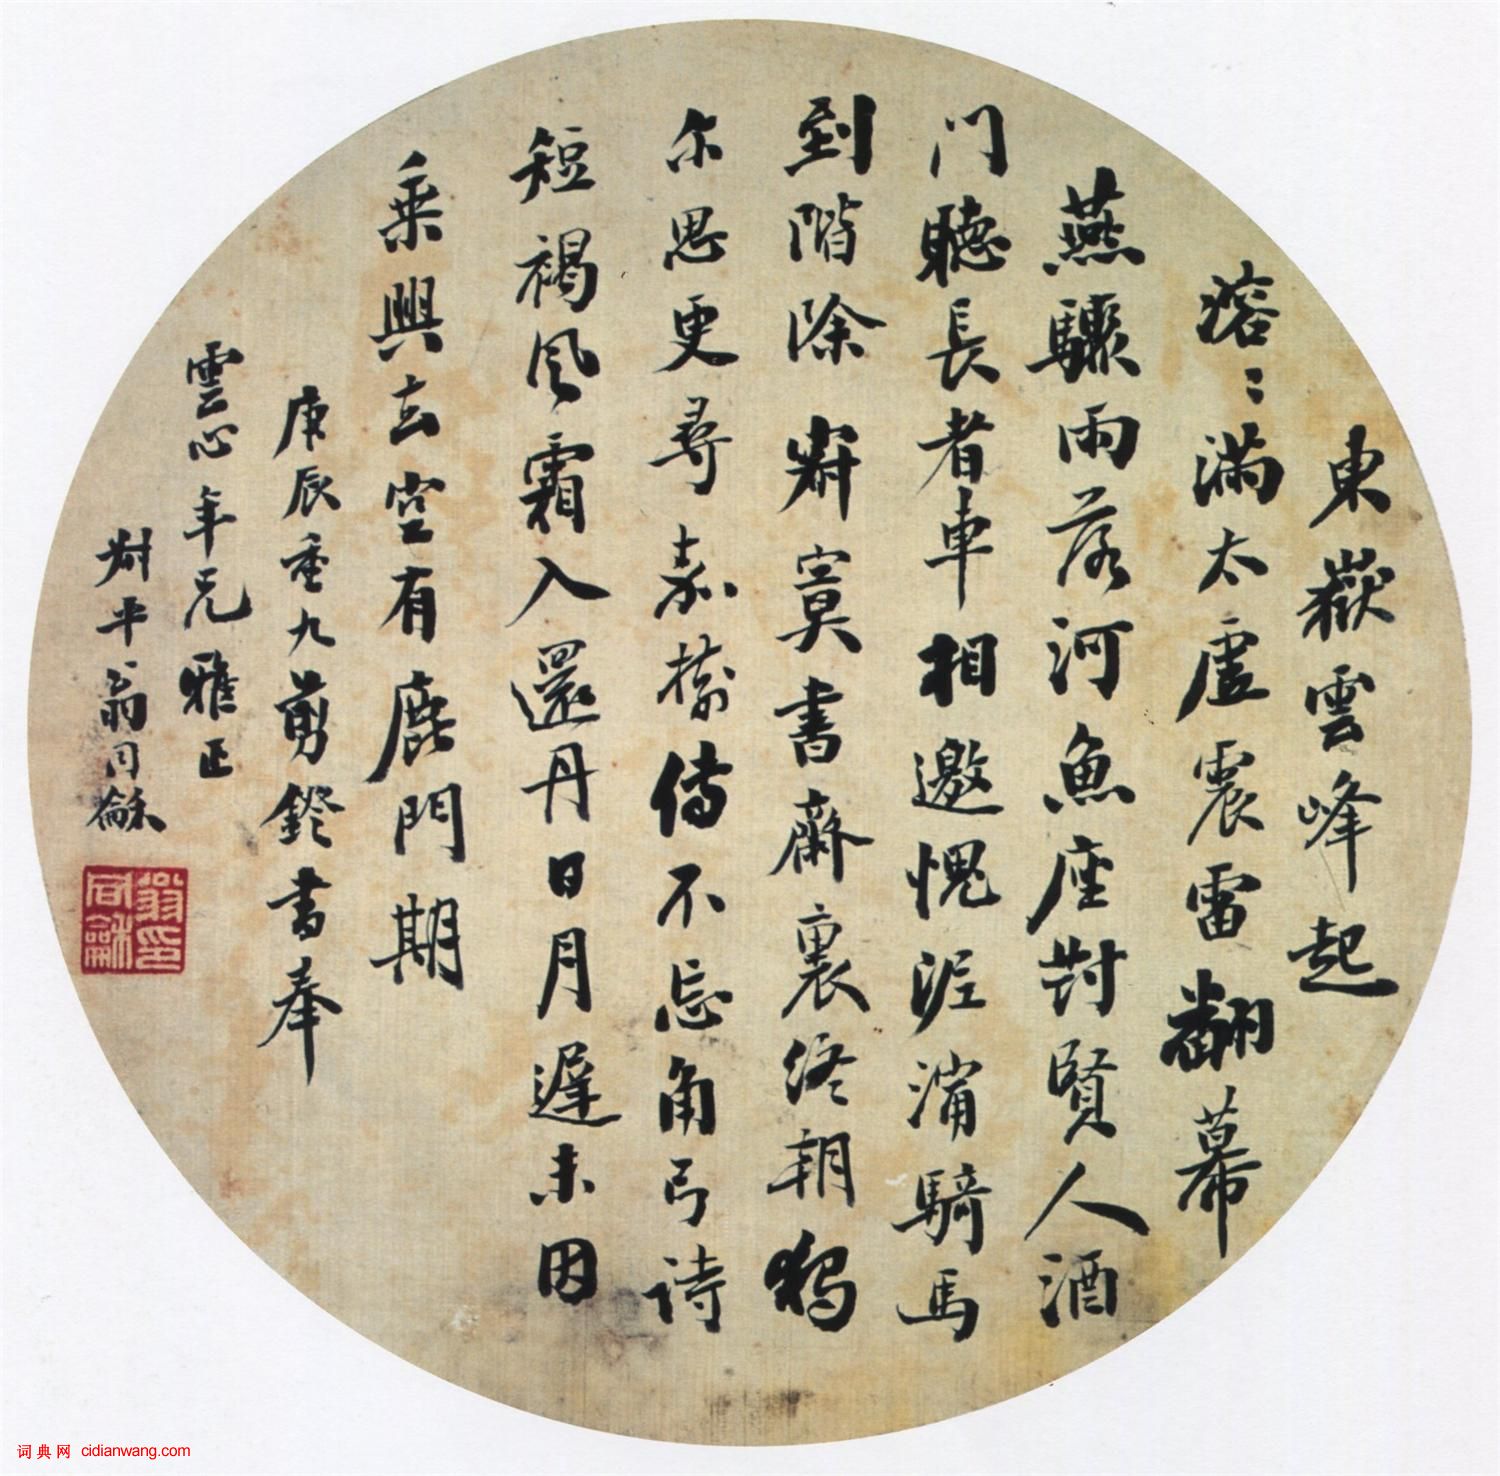 東嶽雲峰起
溶〻滿太虛震雷翻幕
燕驟雨落河魚座對賢人酒
门聽長者車相邀愧泥濘騎馬
到階除 寂寞書齋裏终朝獨
尔思更尋嘉樹傳不忘角弓诗
短褐风霜入還丹日月遲未因
乘興去空有鹿門期
庚辰重九剪鐙書奉
雲心年兄雅正
尌平翁同龢
翁同龢印
词典网 cidianwang.com